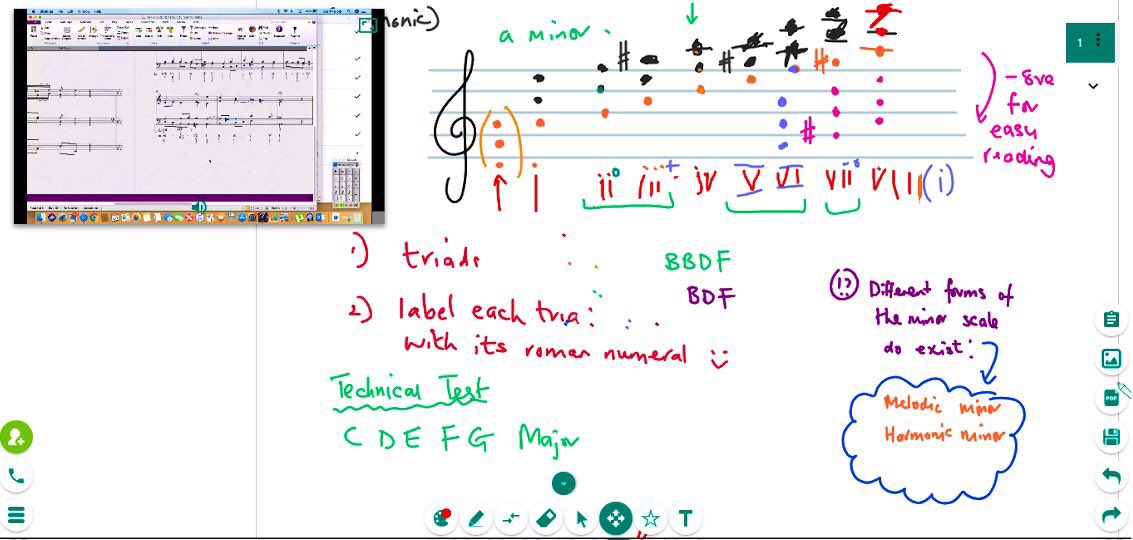 monic)
a minor.
1
-8ve
for
easy
reading
#
#
#
#
i iiº iii+ iv V VI viiº VIII (i)
1) triads
BBDF
BDF
2) label each tria:
with its roman numeral
Technical Test
C D E F G Major
!? Different forms of
the minor scale
do exist:
Melodic minor
Harmonic minor
PDF
T